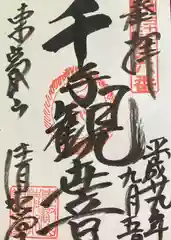 奉拝
平成廿九年
九月五日
千手観世音
東叡山
清水堂